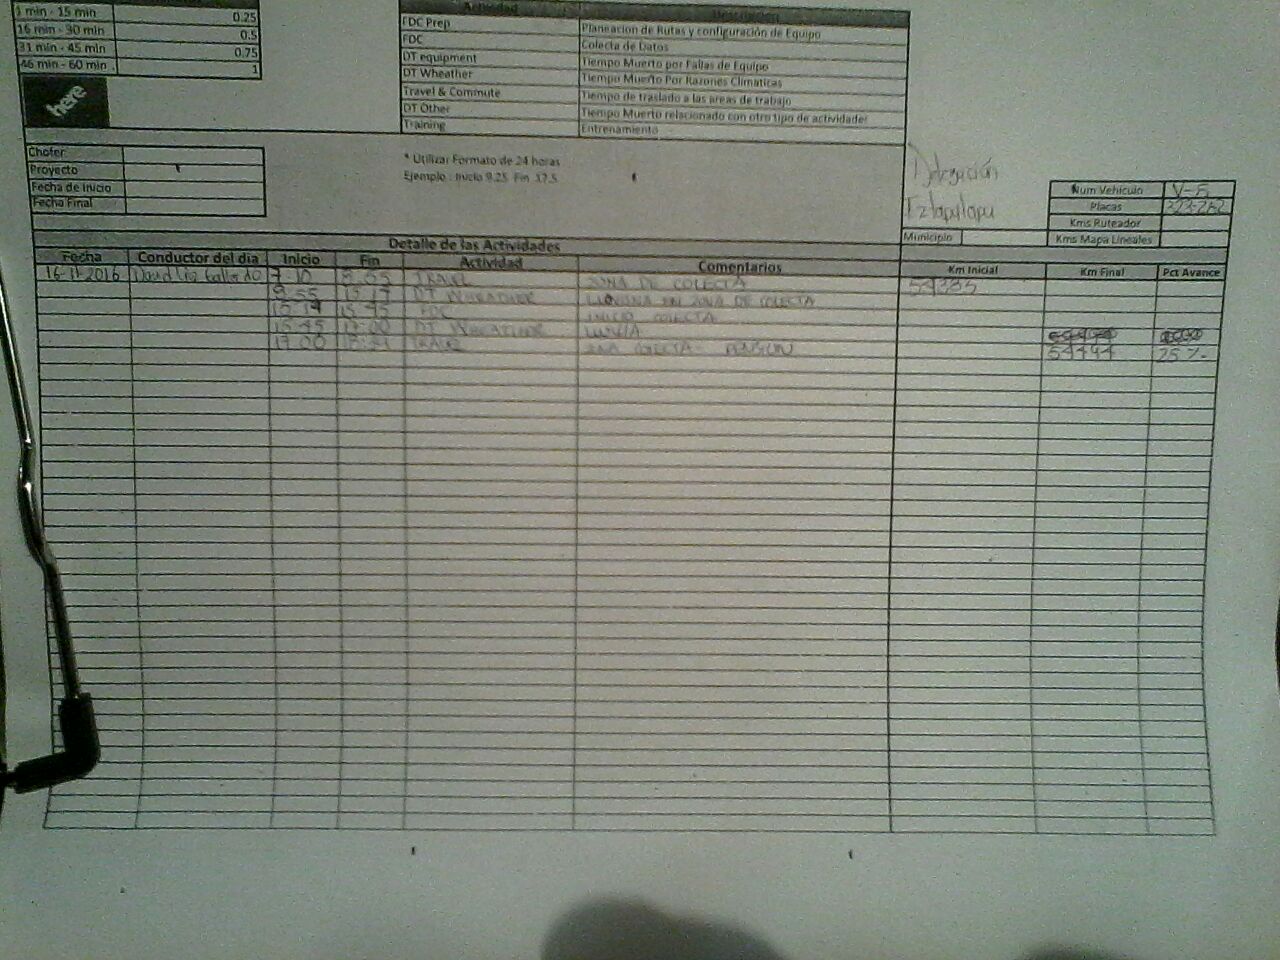 1 min - 15 min 0.25
16 min - 30 min 0.5
31 min - 45 min 0.75
46 min - 60 min 1
here
Actividad Descripcion
FDC Prep Planeacion de Rutas y configuración de Equipo
FDC Colecta de Datos
DT equipment Tiempo Muerto por Fallas de Equipo
DT Wheather Tiempo Muerto Por Razones Climaticas
Travel & Commute Tiempo de traslado a las areas de trabajo
DT Other Tiempo Muerto relacionado con otro tipo de actividade
Training Entrenamiento
Chofer
Proyecto
Fecha de Inicio
Fecha Final
* Utilizar Formato de 24 horas
Ejemplo : Inicio 9.25 Fin 17.5
Delegación
Iztapalapa
Num Vehiculo
Placas
Kms Ruteador
Municipio Kms Mapa Lineales
Detalle de las Actividades
Fecha Conductor del dia Inicio Fin Actividad Comentarios Km Inicial Km Final Pct Avance
16-11-2016 7 10 8 55 TRAVEL ZONA DE COLECTA 54385
8 55 DT WHEATHER EN ZONA DE COLECTA
15 45 FDC INICIO COLECTA
15 45 17 00 DT WHEATHER LLUVIA
17 00 TRAVEL COLECTA - PENSION 54444 25 %